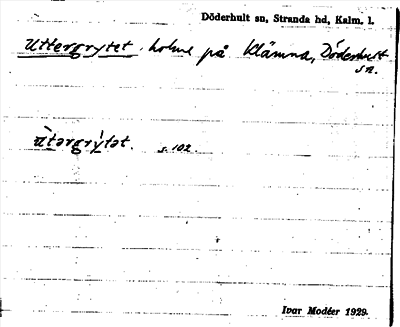 Döderhult sn, Stranda hd, Kalm. l.
Uttergrytet, holme på Klämna, Döderhult
sn.
ùtərgrỳtət. s. 102.
Ivar Modéer 1929.